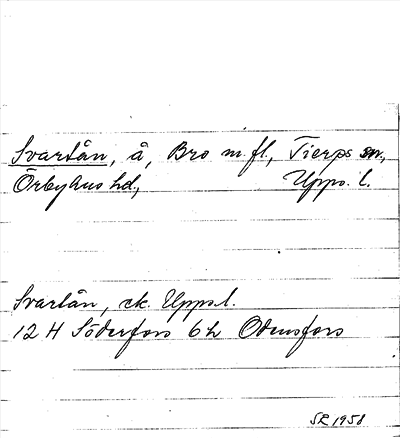 Svartån, å, Bro m.fl., Tierps sn.,
Örbyhus hd., Upps. l.
Svartån, ek. Upps. l.
12 H Söderfors 6 h Odensfors
SR 1958